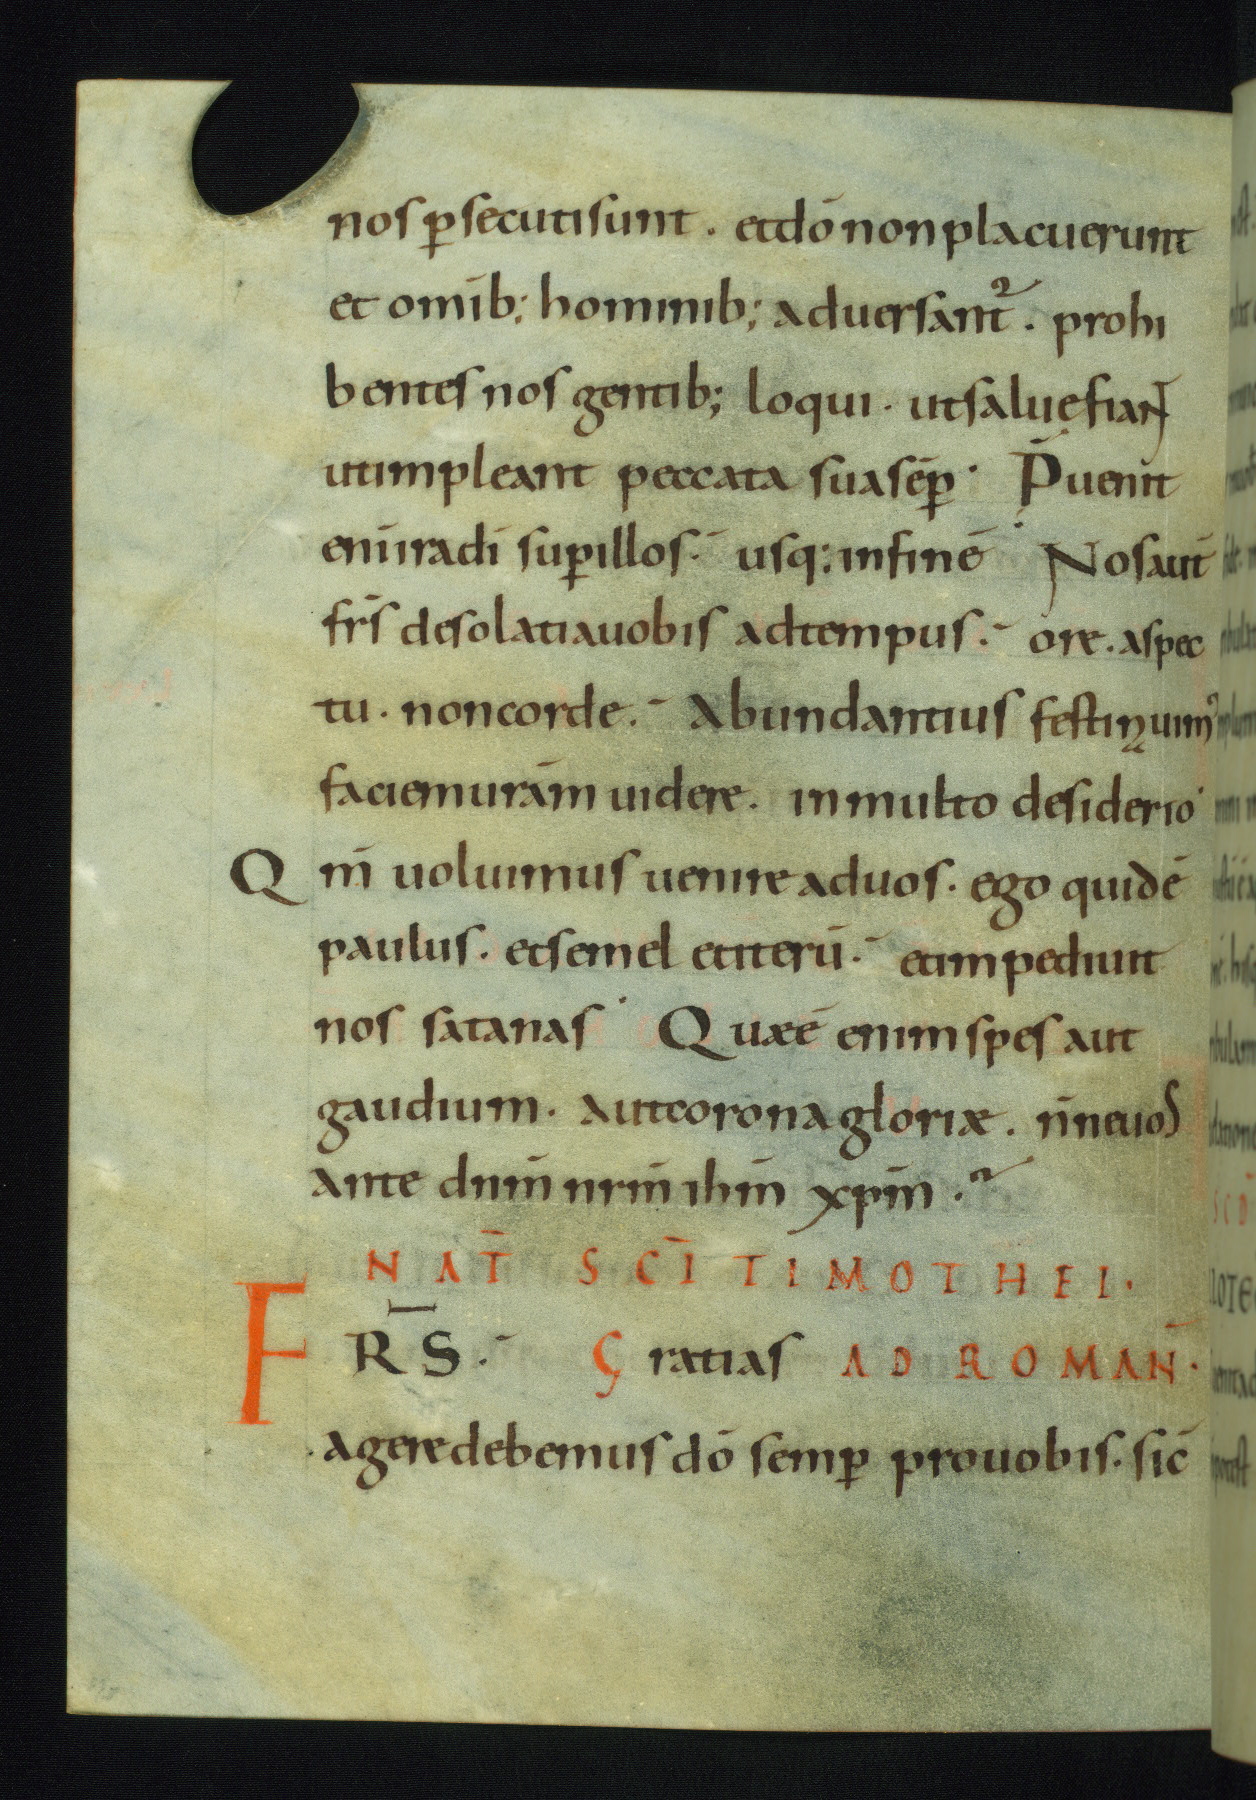 nos ꝑsecuti sunt. et dō non placuerunt
et omīb; hominib; aduersant᷒. prohi
bentes nos gentib; loqui. ut saluę fiant
ut impleant peccata sua sēꝑ. P̄uenit
enī ira dī suꝑ illos. usq; in finē Nos aūt
frs̄ desolati a uobis ad tempus. ore. aspec
tu. non corde. Abundantius festinauim᷒
faciem urām uidere. in multo desiderio
Qm̄ uoluimus uenire ad uos. ego quidē
paulus. et semel et iterū. et impediuit
nos satanas Quae ē enim spes aut
gaudium. aut corona gloriæ. n̄ne uos
ante dnm̄ nrm̄ ihm̄ xpm̄.
NAT̄ SCI̅ TIMOTHEI.
FR̄S. Gratias AD ROMAN̄.
agere debemus dō semꝑ pro uobis. sic̄